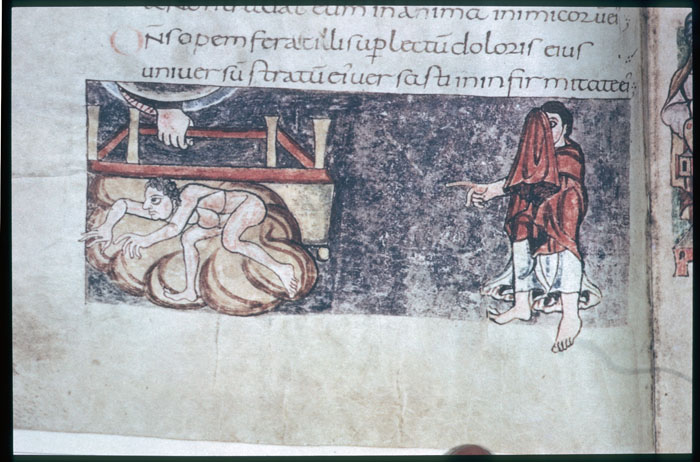 eum in anima inimicoru ei;
DN̄s opem ferat illi sup lectū doloris eius
universū stratū ei' versasti in infirmitate ei;